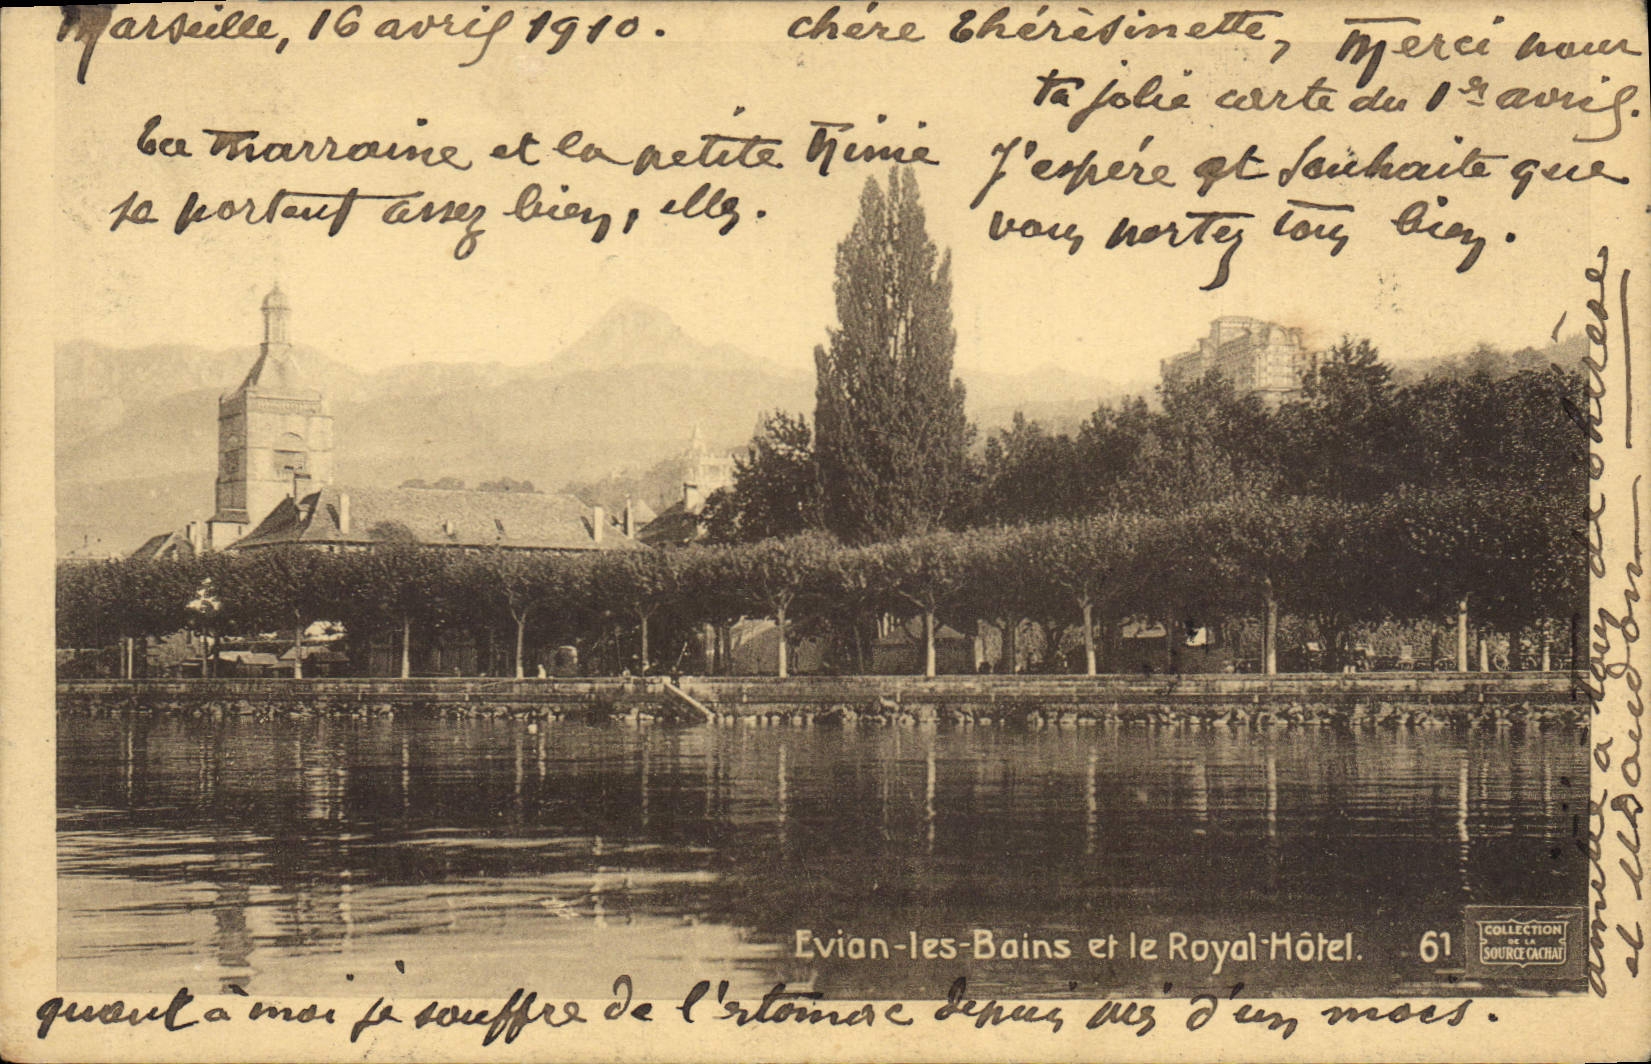 Marseille, 16 avril 1910.
chère Thérèsinette,
Merci pour
ta jolie carte du 1er avril.
J'espère et souhaite que
vous portez tous bien.
Ta marraine et la petite Mimie
se portent assez bien, elles.
quant à moi je souffre de l'estomac depuis près d'un mois.
amitiés à tous de Thérèse
et
Evian-les-Bains et le Royal-Hôtel. 61
COLLECTION
DE LA
SOURCE CACHAT